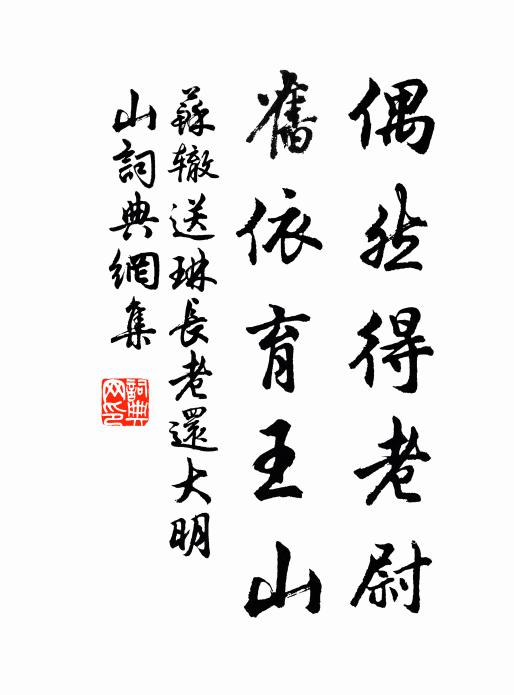 偶然得老尉
舊依育王山
蘇辙送琳長老還大明
山詞典網集
詞典
网印